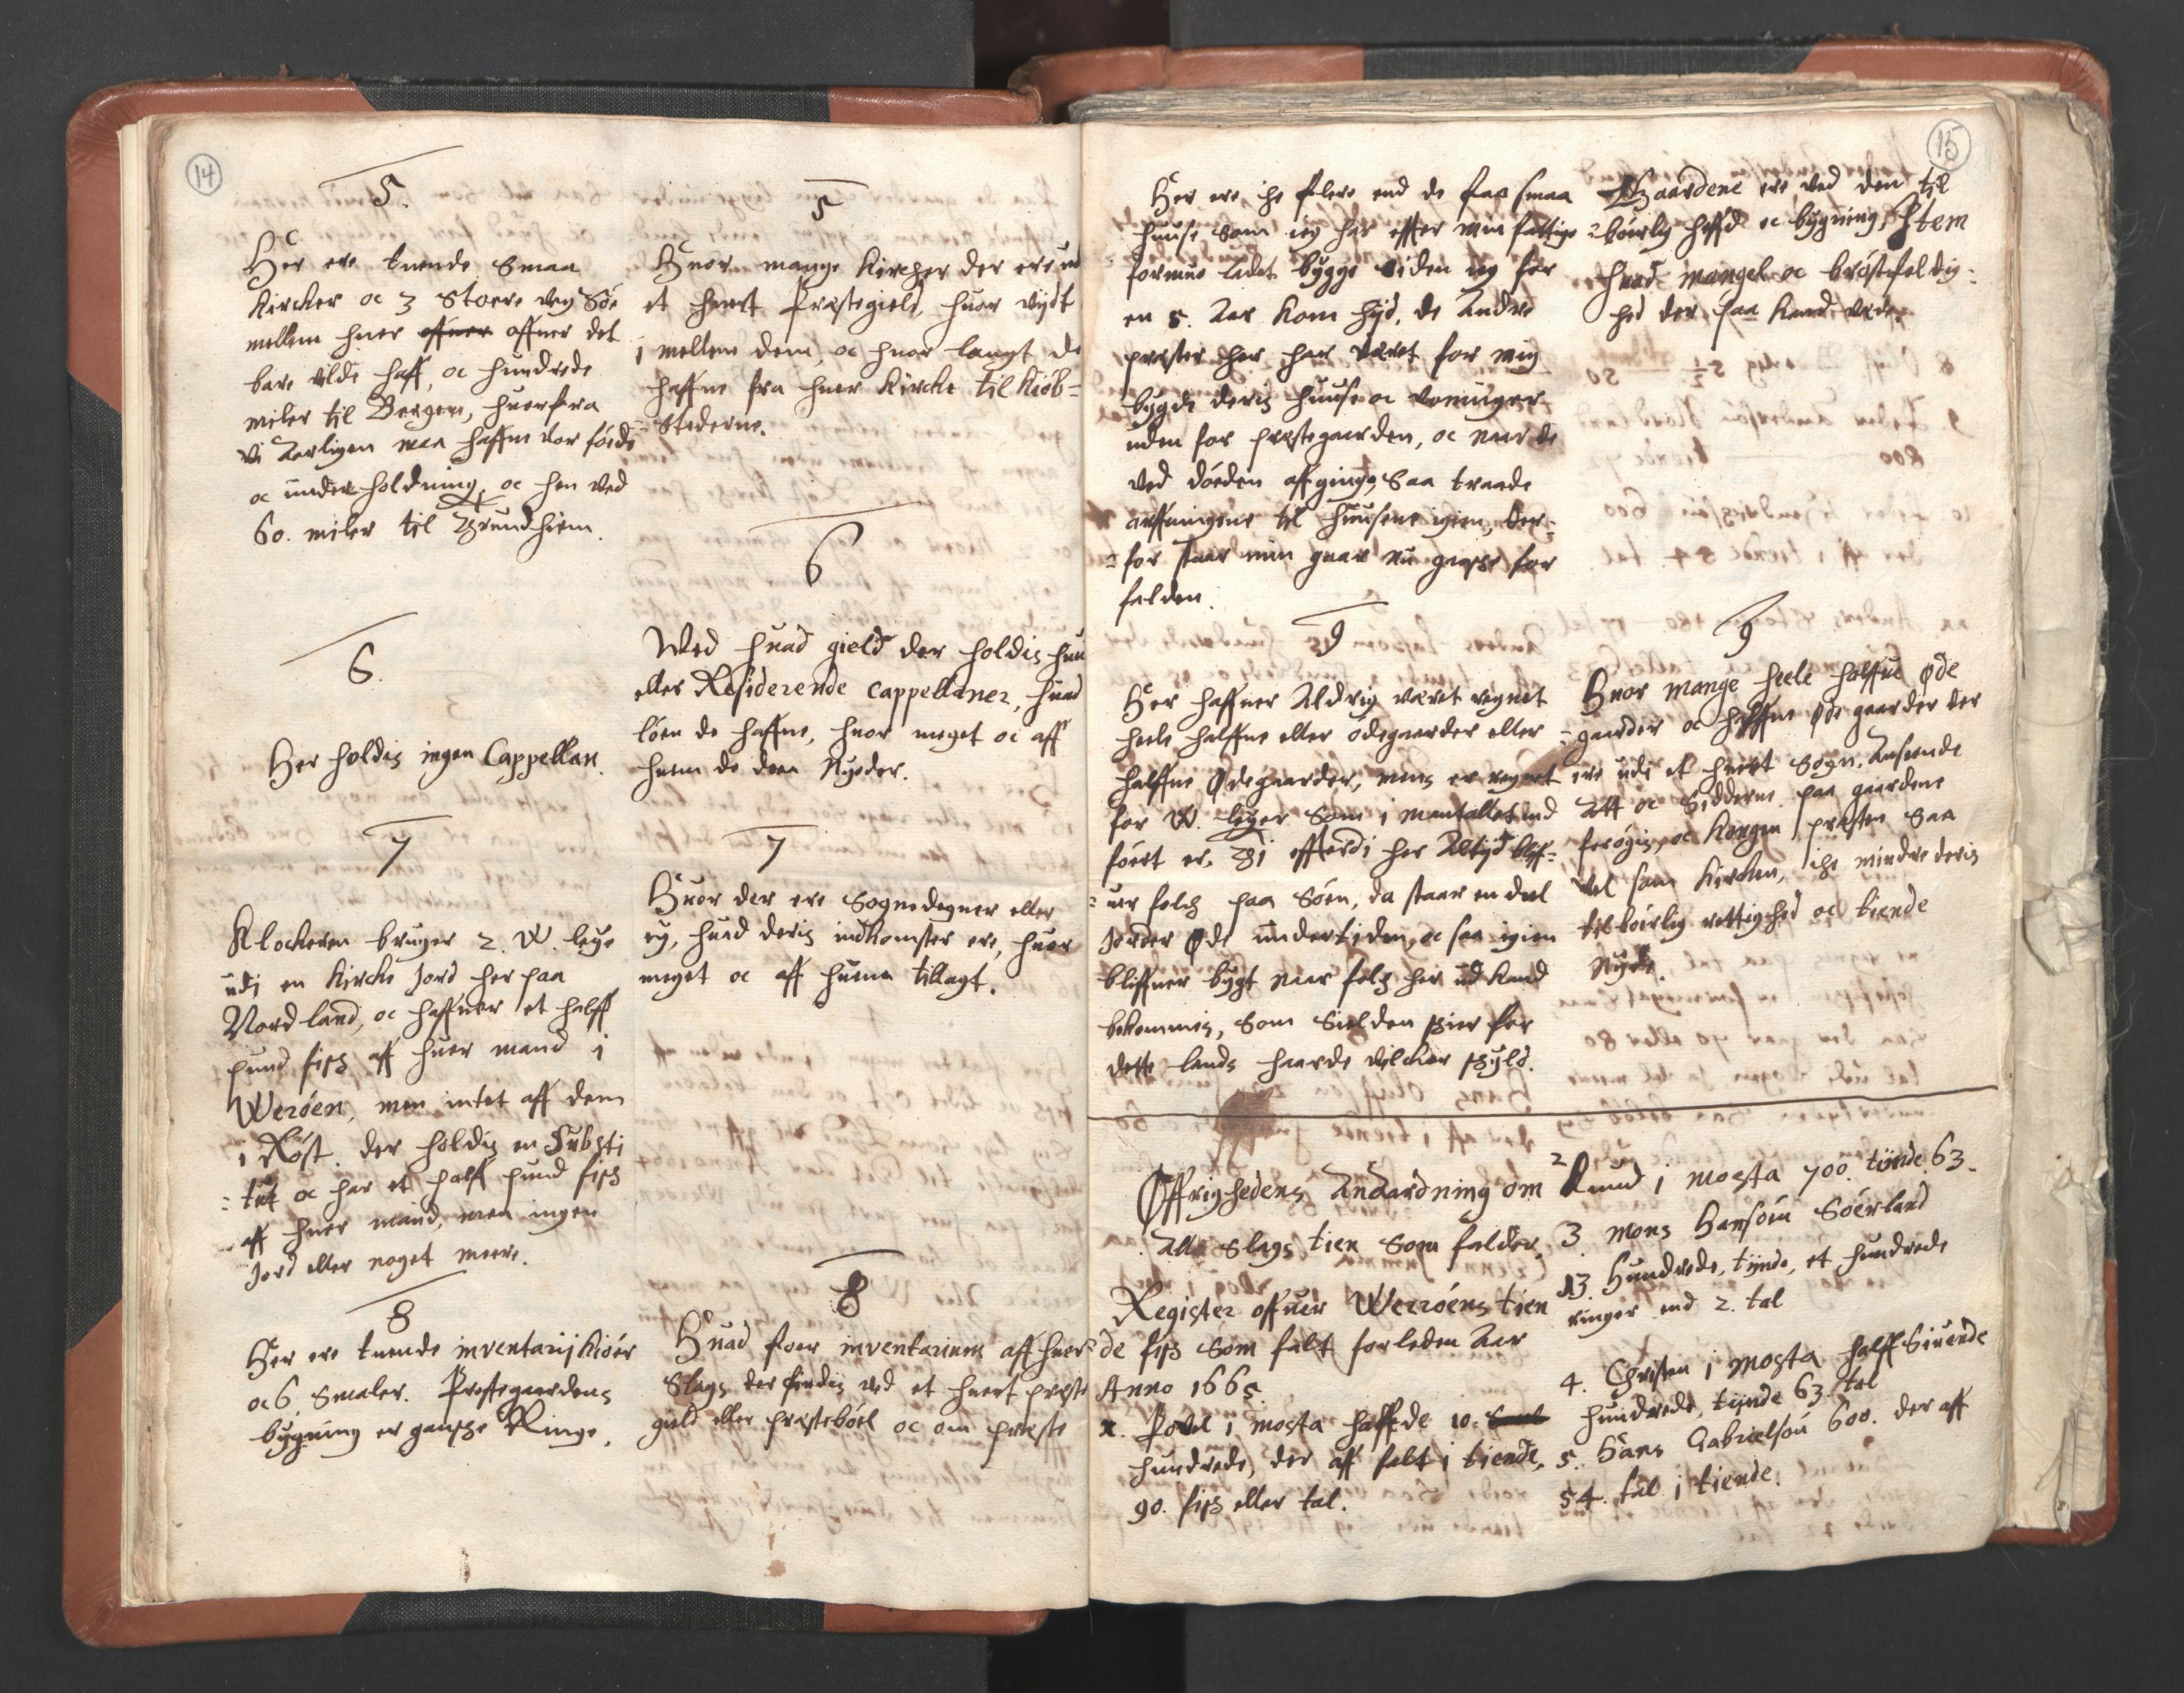 14
5.
Her ere tuende Smaa
Kircker oc 3 Stoere veg Söe
mellem huer offuer offuer det
bare vilde haff, oc hundrede
miler til Bergen, huorfra
vi Aarligen maa haffue vor föede
oc underholdning, oc hen ved
60. miler til Trundhiem.
6.
Her holdis ingen Cappellan.
7
Klockeren bruger 2. W. leye
udi en Kircke Jord her paa
Nordland, oc haffuer et halff
pund fisk aff huer mand i
Weröen, men intet aff dem
i Röst. der holdis en Substi
=tut oc har et halff pund fisk
aff huer mand, men ingen
Jord eller noget meere.
8
Her ere tuende inventarij Kiöer
oc 6. Smaler. Prestegaardens
bygning er ganske Ringe.
5
Huor mange Kircker der ere ud
et huert Præstegield, huor vijdt
i mellem dem, oc huor langt de
haffue fra huer Kircke til Kiöb=
=Stederne.
6
Wed huad gield der holdis huu
eller Residerende Cappellaner, huad
löen de haffue, huor meget oc aff
huem de den Nyder.
7
Huor der ere Sognedegner eller
ey, huad deris indkomster ere, huor
meget oc aff huem tillagt.
8
Huad foer inventarium aff huer
Slags der findis ved et huert præste
gield eller præsteböel oc om præste
15
Her ere ike flere end de faa smaa
huuse som ieg har effter min fattige
formue ladet bygge siden ieg for
en 5. Aar kom hijd, de Andre
præster her har været for mig
bygde deris huuse oc vaaninger
uden for præstegaarden, oc naar de
ved döeden affginge, Saa traade
arffuingene til huusene igien, der=
=for staar min gaar nu ganske for
falden.
9
Her haffuer Aldrig været regnet
heele halffue eller ödegaarder eller
halffue Ödegaarder, mens er regnet
for W. leyer som i mantallet ind
föert er. Thi effterdi her Altijd bliff=
=uer folck paa Söen, da staar en deel
Jorder Öde undertiden, oc saa igien
bliffuer bygt naar folck her ud kand
bekommis, som sielden skier for
dette lands haarde vilckor skyld.
Gaardene ere ved den til
=börlig hæffd oc bygning, Item
huad mangel oc bröstfeldig=
hed der paa kand være.
9
Huor mange heele halffue Öde
=gaarder oc halffue Öde gaarder der
ere udi et huert Sogn. Anseende
Att oc Sidderne paa gaardene
forögis, oc Kongen, præsten Saa
vel som Kircken, ike mindre deris
tilbörlig rettighed oc tiende
Nyde.
Öffrighedens Anordning om
Alle Slags tien Som falder.
Register offuer Werröens tien
de fisk Som falt forleden Aar
Anno 1665.
1. Povel i Mosta haffde 10.
hundrede, der aff falt i tiende,
90. fisk eller tal.
2 Knud i Mosta 700. tijnde 63.
3. Mons Hansön Söerland
13. Hundrede, tijnde, et hundrede
ringer end 2. tal
4. Christen i Mosta halff Siuende
hundrede, tijnde 63. tal
5. Hans Gabrielsön 600. der aff
54. tal i tiende.